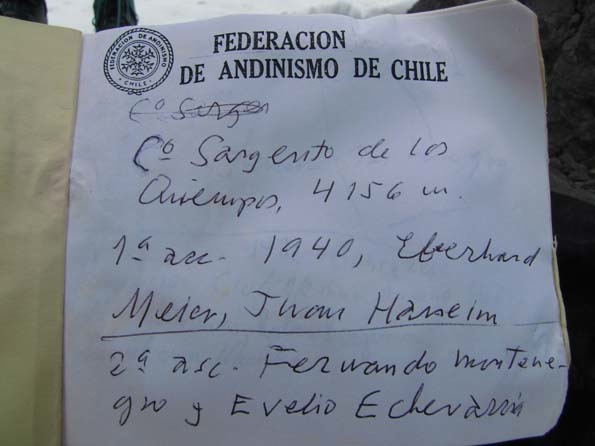 FEDERACION DE ANDINISMO
CHILE
FEDERACION
DE ANDINISMO DE CHILE
Cº
Cº Sargento de los
4156 m.
1ª asc. 1940, Eberhard
Meier, Juan Harseim
2ª asc. Fernando Montene-
gro y Evelio Echevarría